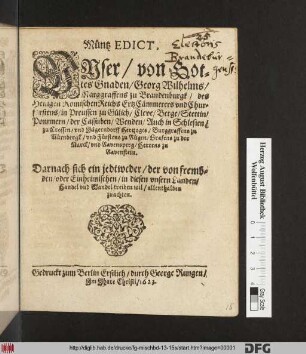 Müntz EDICT.
Electoris
Brandebur-
gensis.
Vnser / von Got-
tes Gnaden / Georg Wilhelms /
Marggraffens zu Brandenburgk / des
Heiligen Römischen Reichs Ertz Cämmerers vnd Chur-
fürstens / in Preussen zu Gülich / Cleve / Berge / Stettin /
Pommern / der Cassuben / Wenden / Auch in Schlesien /
zu Crossen / vnd Jägerndorff Hertzogs / Burggraffens zu
Nürnbergk / vnd Fürstens zu Rügen / Graffens zu der
Marck / vnd Ravensperg / Herrens zu
Ravenstein.
Darnach sich ein jedtweder / der von frembd-
den / oder Einheimischen / in diesen vnsern Landen /
Handel vnd Wandel treiben wil / allenthalben
zuachten.
Gedruckt zum Berlin Erstlich / durch George Rungen /
Im Jahre Christi / 1623.
Herzog August Bibliothek
Wolfenbüttel
http://diglib.hab.de/drucke/lg-mischbd-13-15s/start.htm?image=00001
DFG